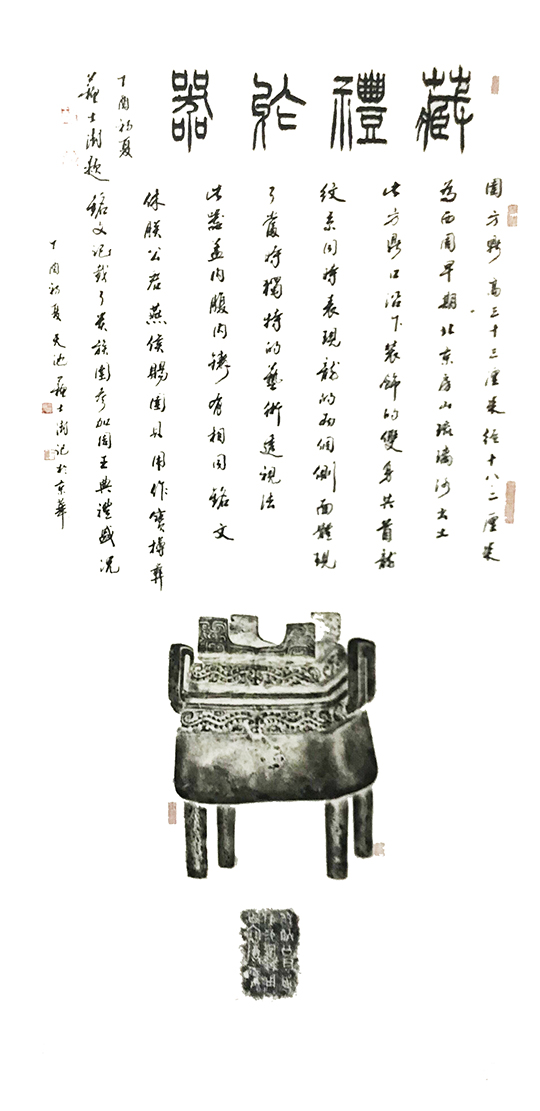 藏禮於器
丁酉初夏
蘇士澍題
圉方鼎高三十三厘米徑十八二厘米
為西周早期北京房山琉璃河出土
此方鼎口沿下裝飾的雙身共首龍
紋系同時表現龍的兩個側面體現
了當時獨特的藝術透視法
此器蓋內腹內鑄有相同銘文
休朕公君燕侯賜圉貝用作寶尊彝
銘文記載了貴族圉參加周王典禮盛況
丁酉初夏天池蘇士澍記於京華